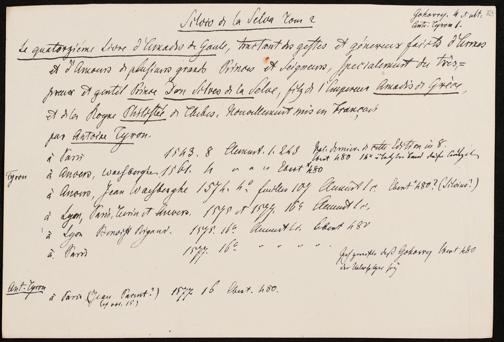 Silves de la Selva Tom 2
Gohorry. 4. 5.
Ant. Tyron 6.
Le quatorzieme Livre d'Amadis de Gaule, traictant des gestes et généreux faicts d'Armes
et d'Amours de plusieurs grands Princes et Seigneurs, specialement du très=
preux et gentil Prince Don Silves de la Selve, filz de l'Empereur Amadis de Grèce,
et de la Royne de Thebes. Nouvellement mis en Français
par Antoine Tyron.
à Paris 1543. 8 Clement. 1. 243 Edition in 8.
Ebert 480
Tyron à Anvers, Waesberghe 1561. 4 " " Ebert 480
à Anvers, Jean Waesberghe 1574. 4° feuilles 107 Clement l. c. Ebert 480.?
à Lyon, Paris, Turin et Anvers. 1575 et 1577. 16° Clement l. c.
à Lyon Benoist Rigaud. 1575. 16° Clement l. c. Ebert 480
à Paris 1577. 16° " " " "
Gohorry Ebert 480
Ant. Tyron
à Paris (Jean Parent?) 1577 16 Ebert. 480.